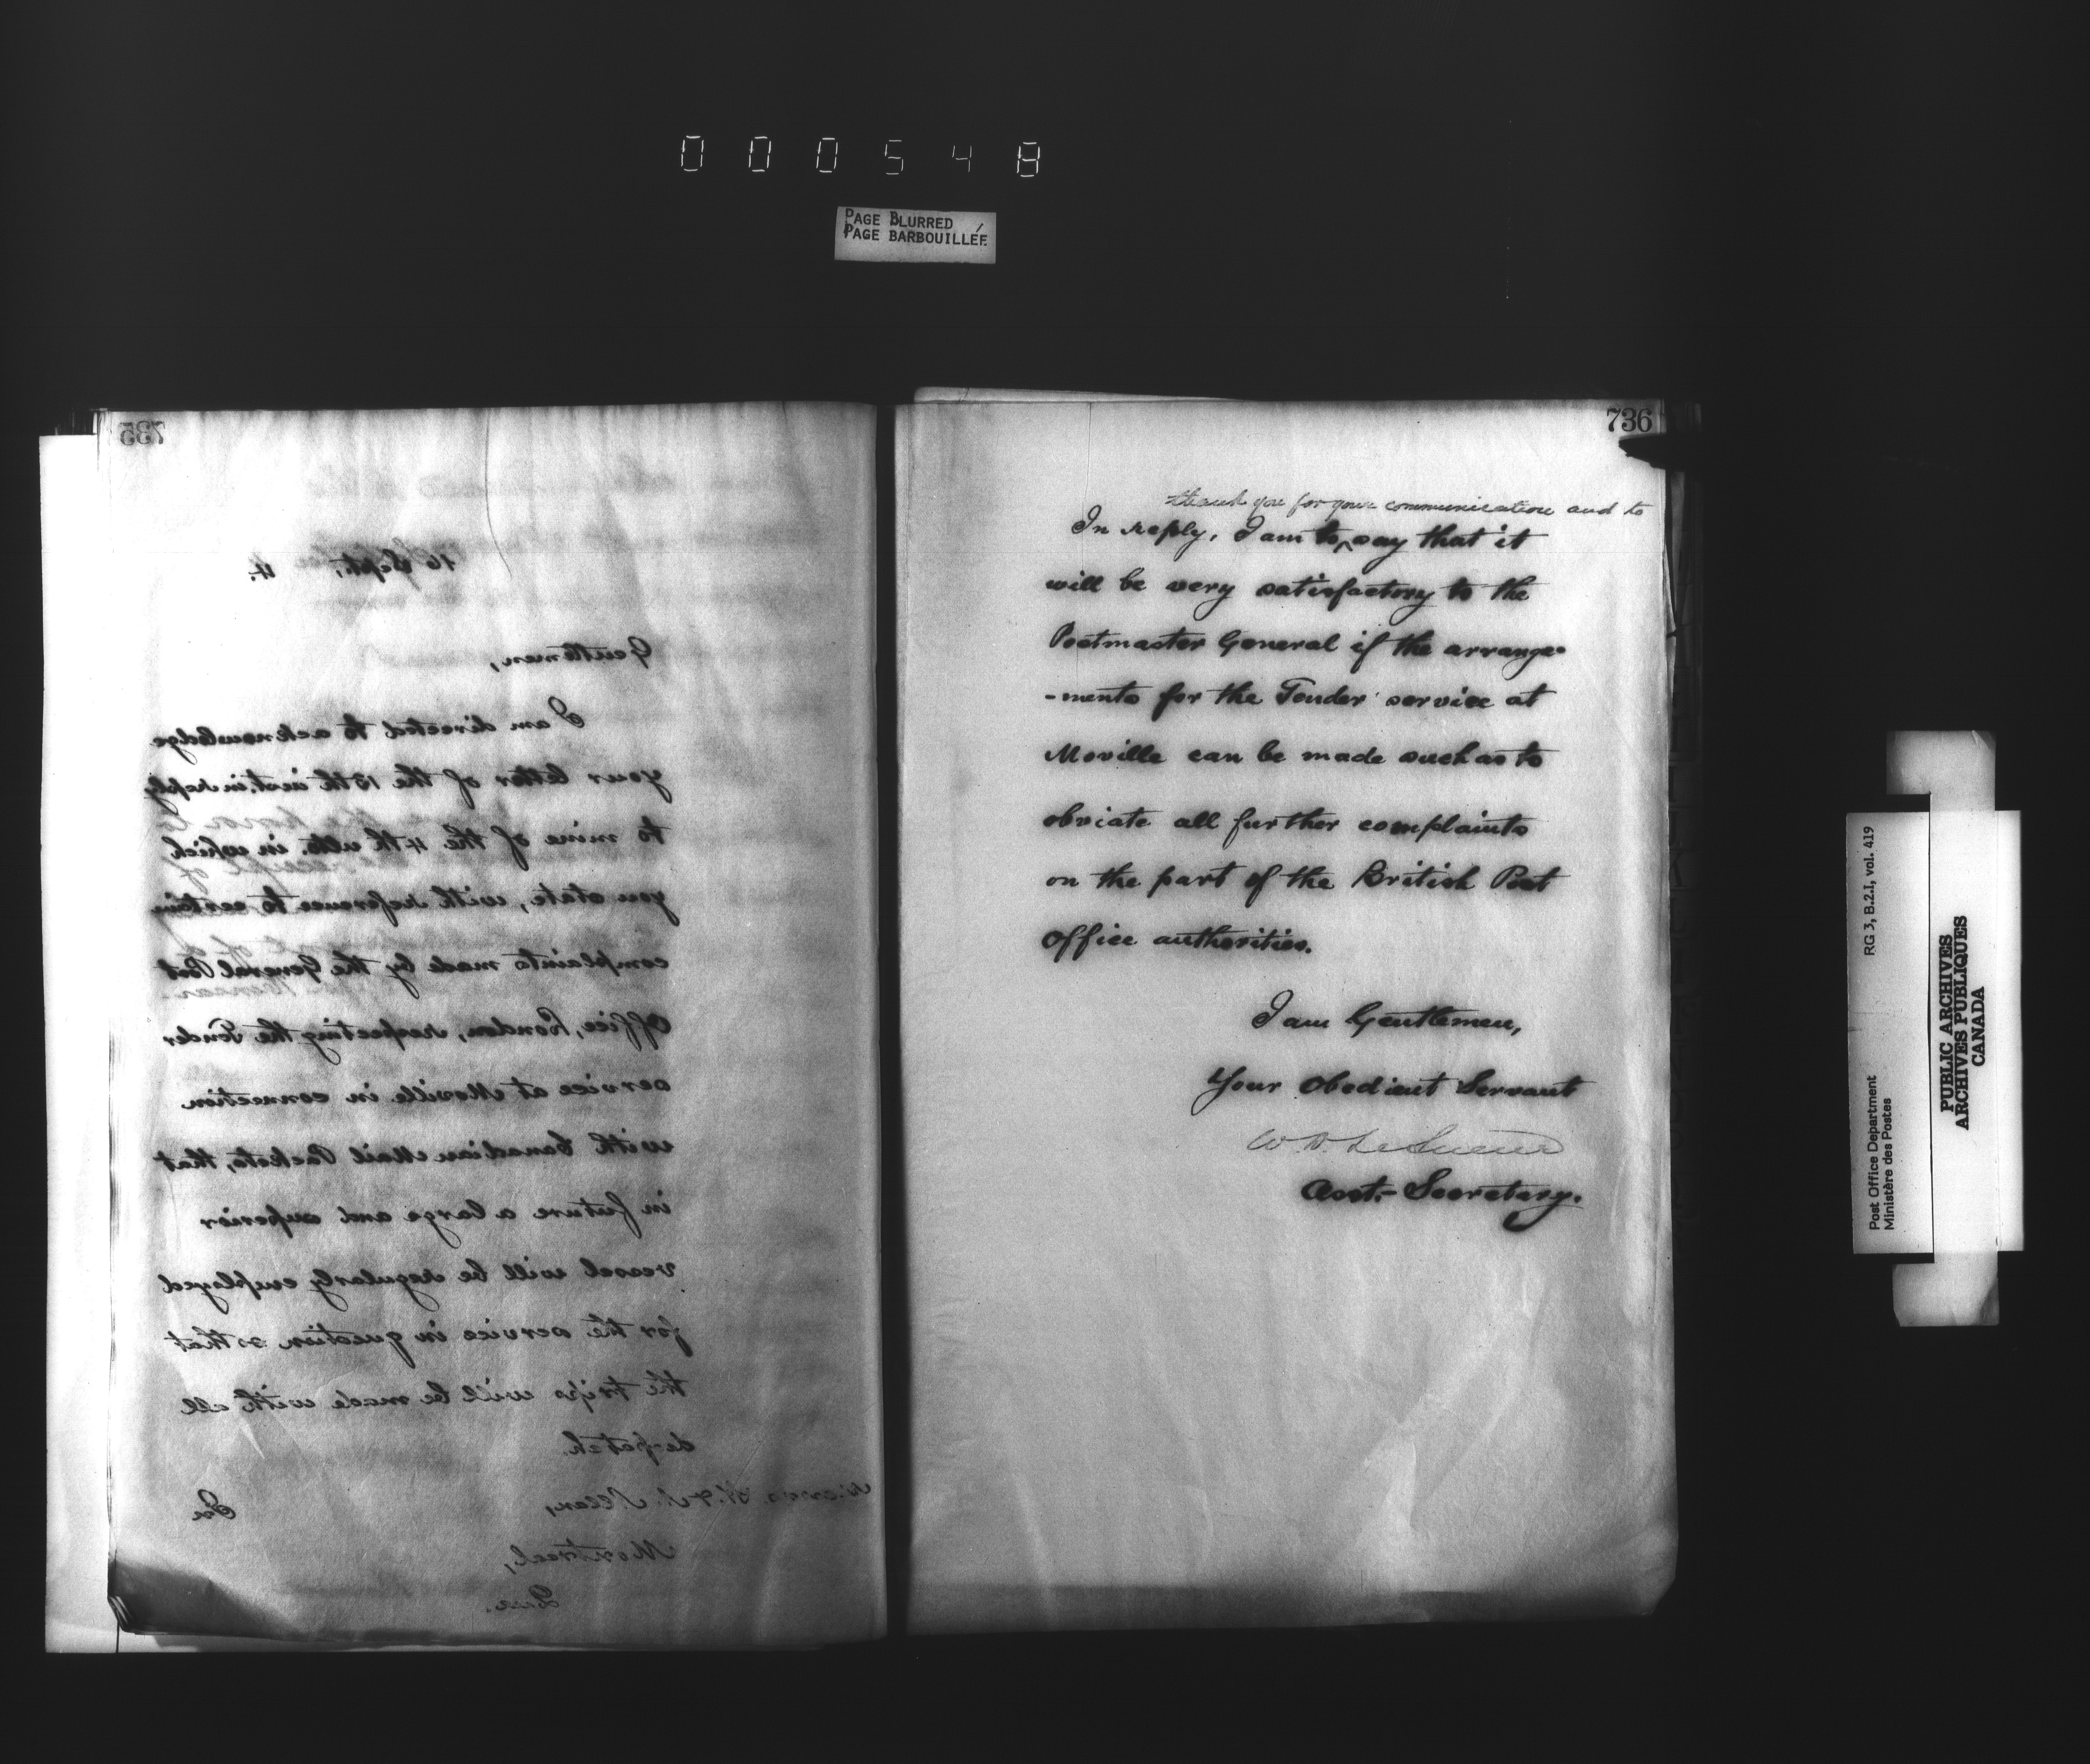 000548
PAGE BLURRED
PAGE BARBOUILLÉE
735
16 Sept., 4.
Gentlemen,
I am directed to acknowledge
your letter of the 15th inst. in reply
to mine of the 4th ulto. in which
you state, with reference to certain
complaints made by the General Post
Office, London, respecting the Tender
service at Moville in connection
with Canadian Mail Packets, that
in future a large and superior
vessel will be regularly employed
for the service in question so that
the trips will be made with all
despatch.
In
Messrs. H. & A. Allan,
Montreal,
Que.
736
thank you for your communication and to
In reply, I am to ^ say that it
will be very satisfactory to the
Postmaster General if the arrange-
-ments for the Tender service at
Moville can be made such as to
obviate all further complaints
on the part of the British Post
Office authorities.
I am Gentlemen,
Your Obedient Servant
W. D. LeSueur
Asst.- Secretary.
RG 3, B.2.1, vol. 419
Post Office Department
Ministère des Postes
PUBLIC ARCHIVES
ARCHIVES PUBLIQUES
CANADA